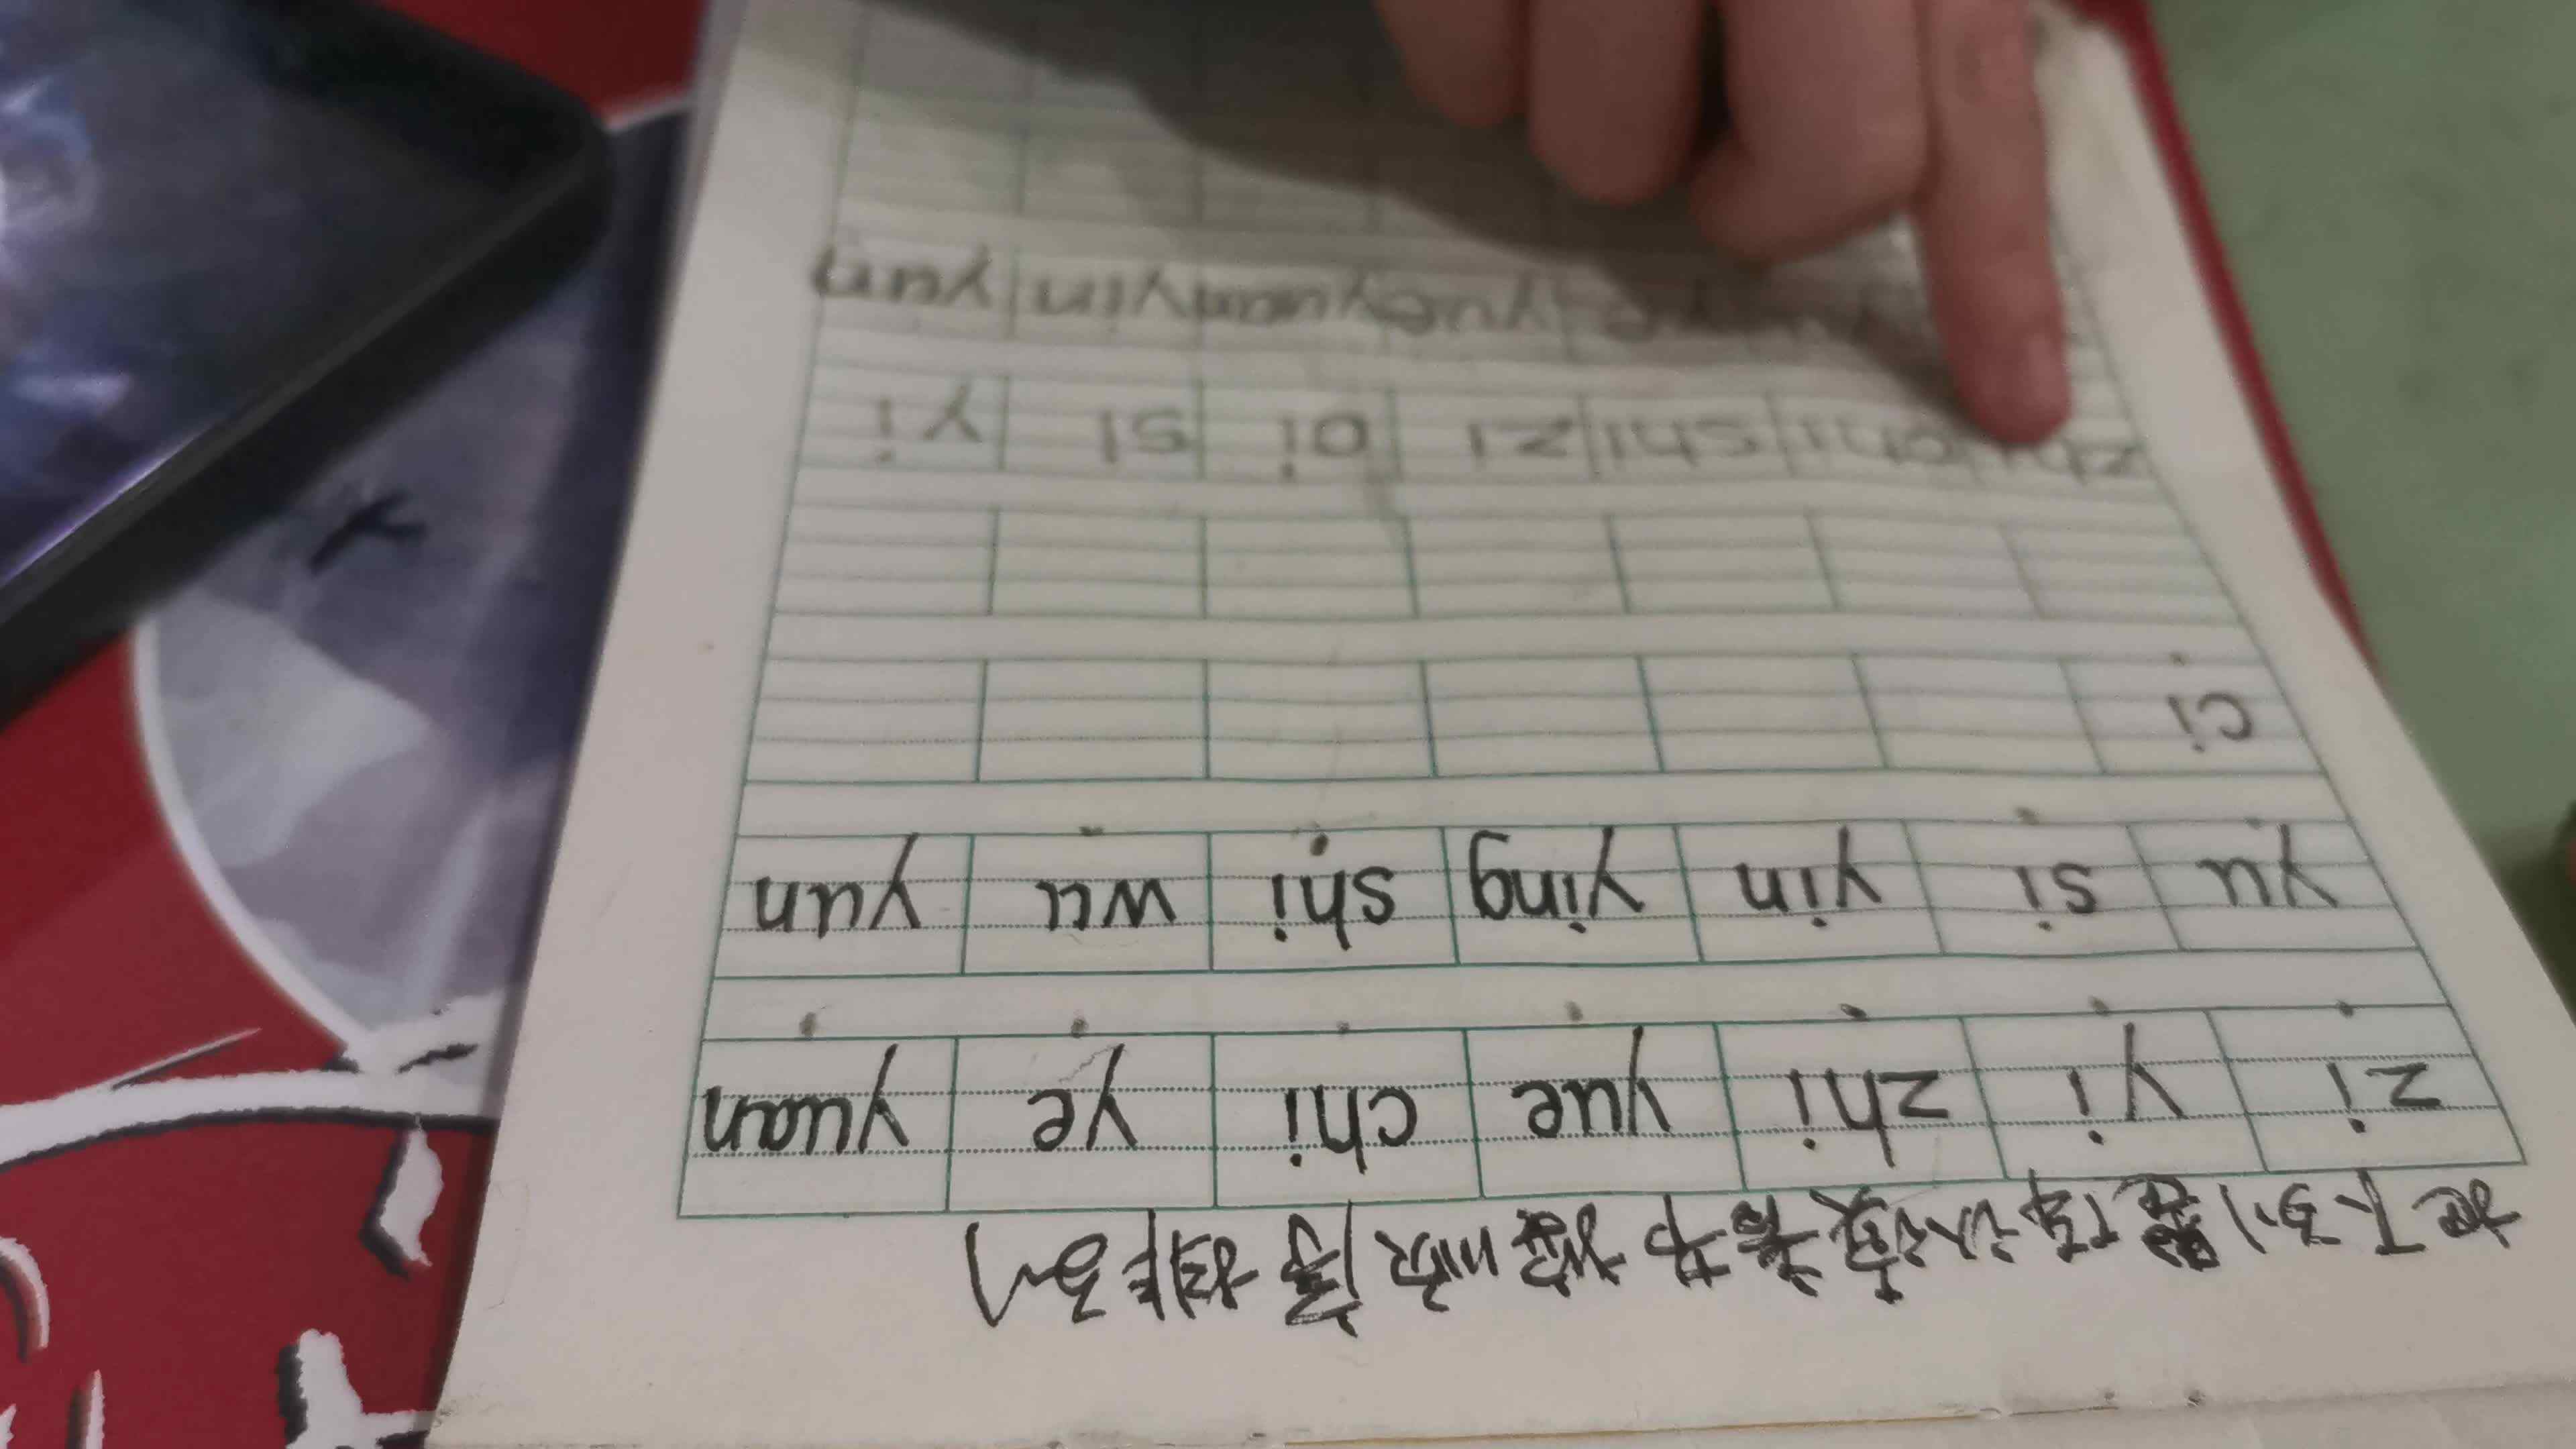 把下列整体认读音节按顺序排列
zi yi zhi yue chi ye yuan
yu si yin ying shi wu yun
ci
zhi chi shi zi ci si yi
ye yue yuan yin yun